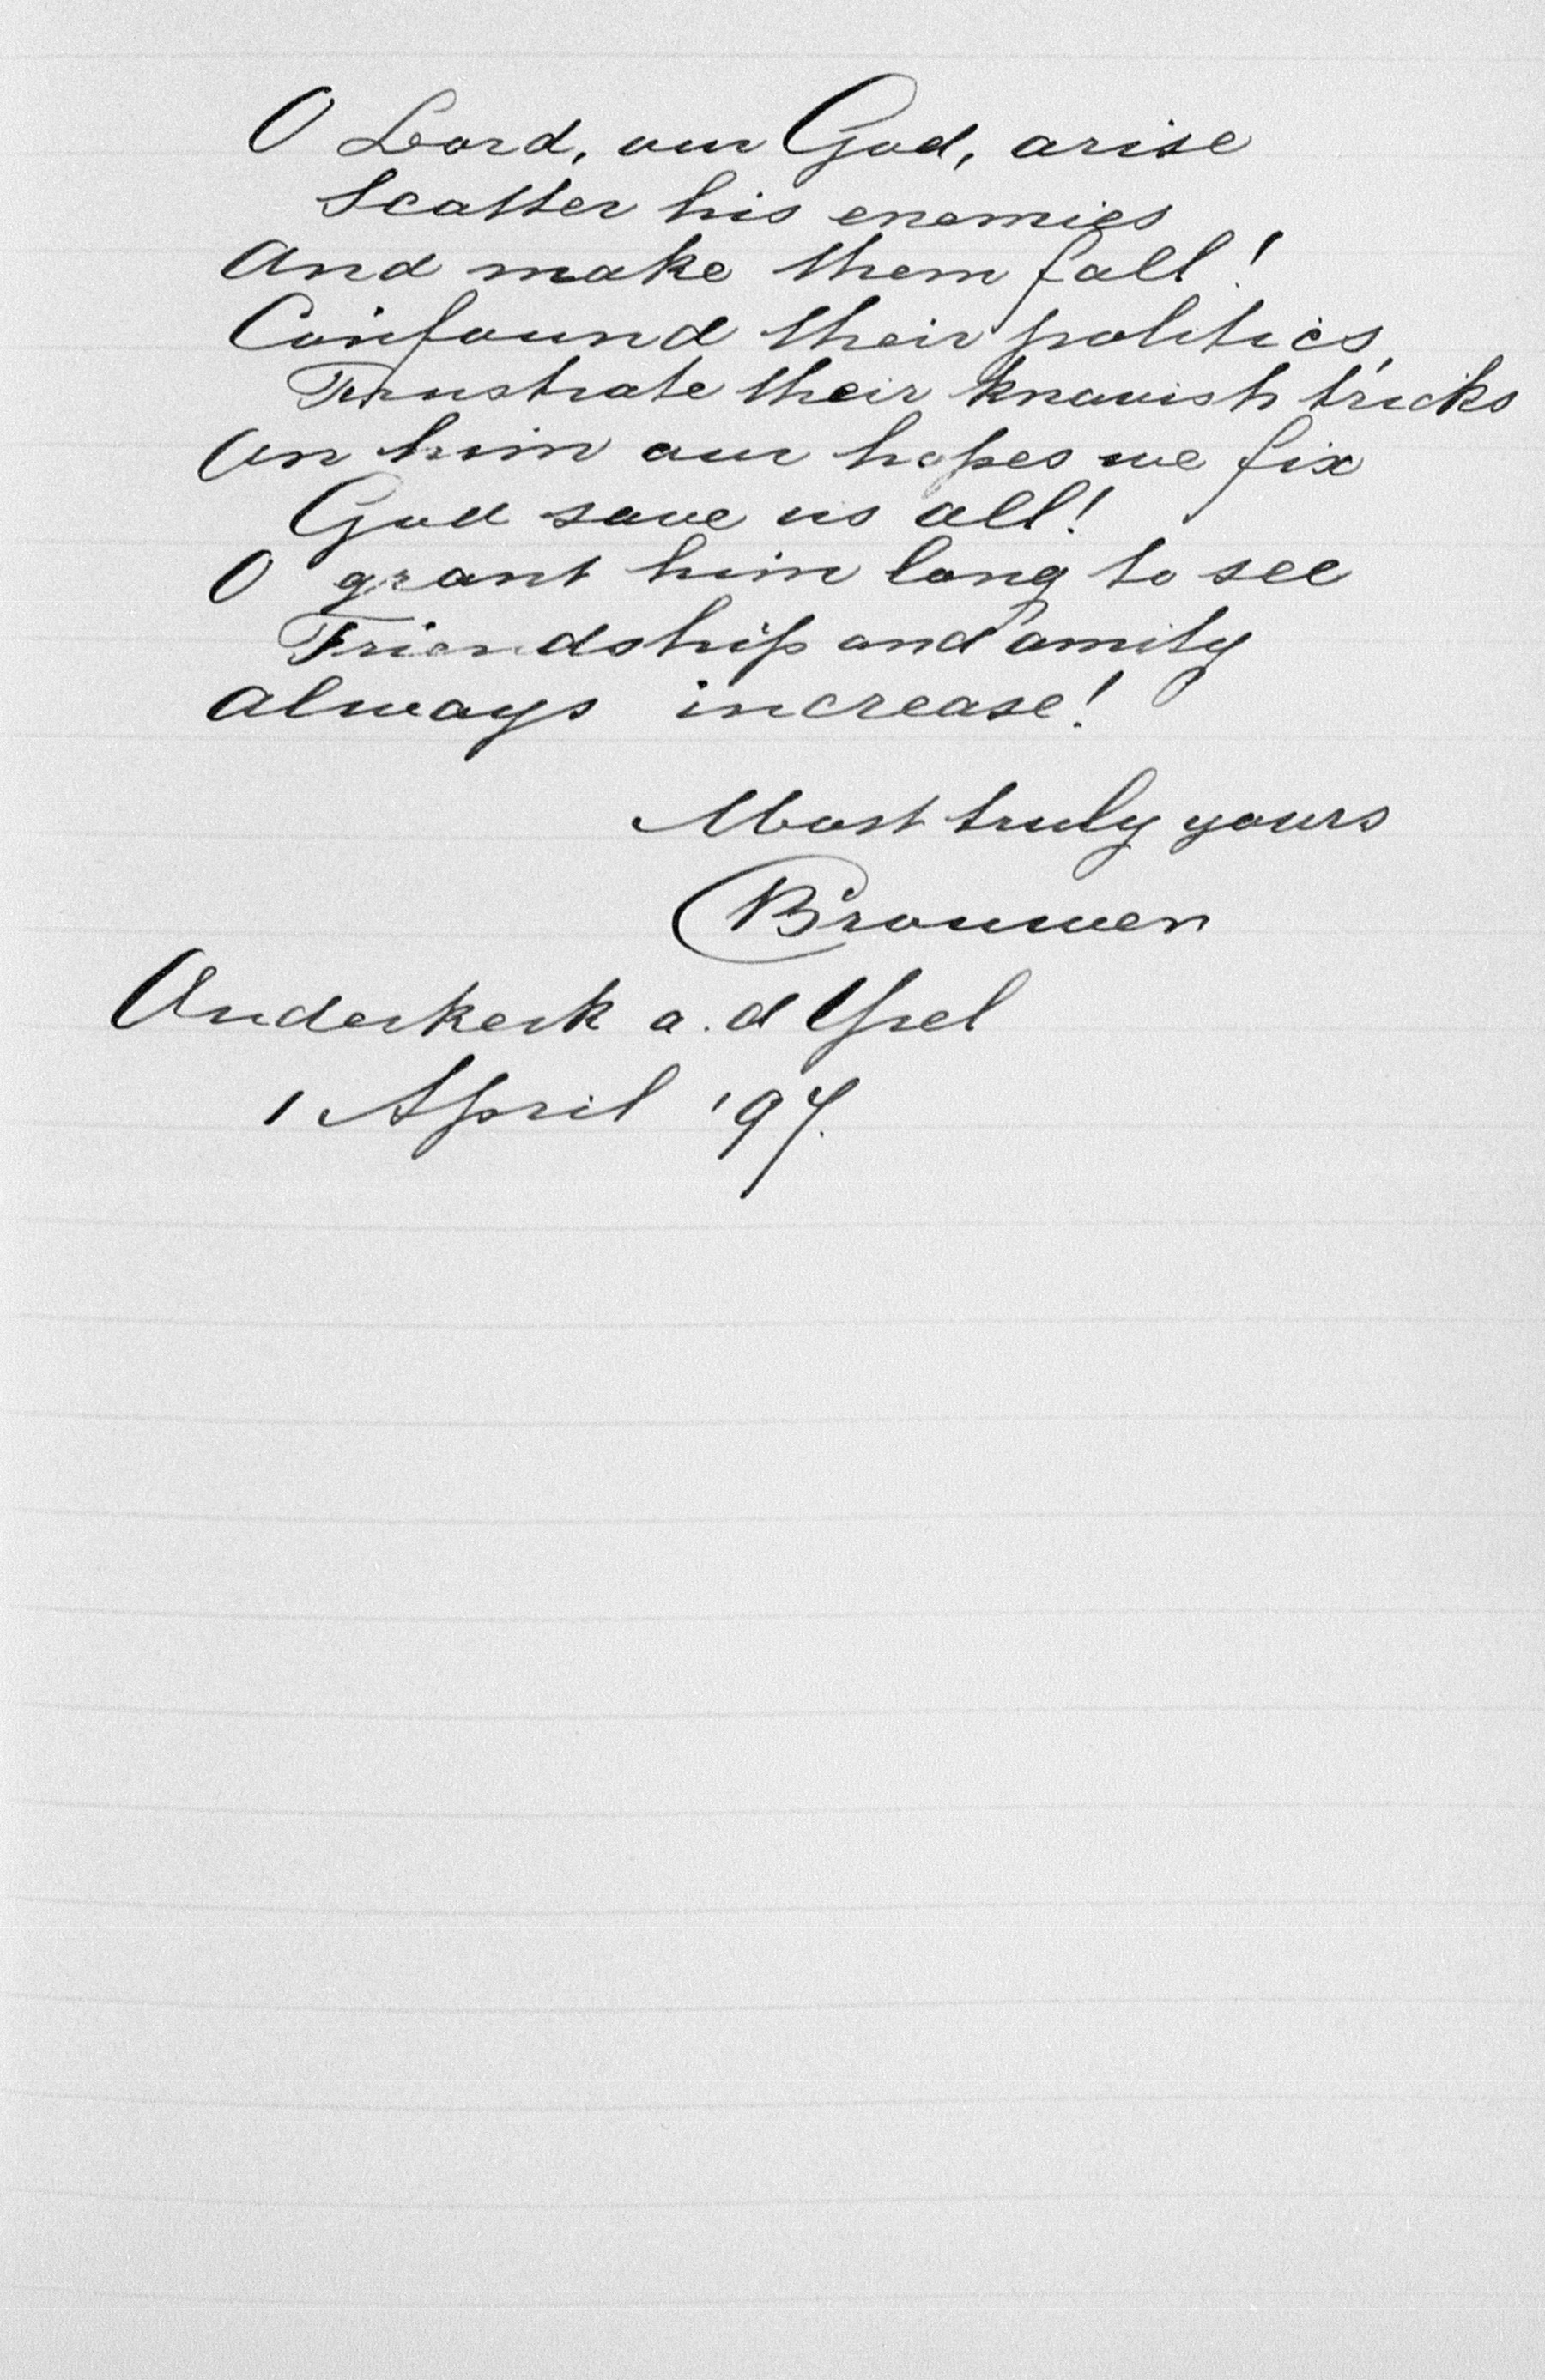 O Lord, our God, arise
Scatter his enemies
And make them fall!
Confound their politics,
Frustrate their knavish tricks
On him our hopes we fix
God save us all!
O grant him long to see
Friendship and amity
Always increase!
Most truly yours
Brouwer
Ouderkerk a.d Ysel
1 April '97.